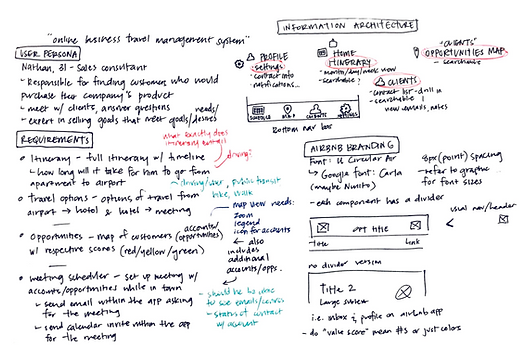 "online business travel management system"
USER PERSONA
Nathan, 31 - Sales consultant
- Responsible for finding customer who would
purchase their company's product
- meet w/ clients, answer questions
needs/
- expert in selling goods that meet goals/desires
REQUIREMENTS
what exactly does
itinerary entail?
• Itinerary - full itinerary w/ timeline
"driving"
↳ how long will it take for him to go from
apartment to airport
→ driving/uber, public transit
bike, walk
• Travel options - options of travel from
airport → hotel & hotel → meeting
map view needs:
zoom
legend
icon for accounts
• Opportunities - map of customers (accounts/opportunities)
w/ respective scores (red/yellow/green)
↳ also
includes
additional
accounts/opps.
• meeting scheduler - set up meeting w/
accounts/opportunities while in town
↳ send email within the app asking
for the meeting
↳ send calendar invite within the app
for the meeting
- should be able
to see emails/
- status of contact
w/ account
INFORMATION ARCHITECTURE
PROFILE
settings
- contact info
- notifications...
HOME
ITINERARY
- month/day/week view
- searchable
"CLIENTS"
OPPORTUNITIES MAP
- searchable
CLIENTS
- contact list - drill in
- searchable
view emails, notes
SCHEDULE MAP CLIENTS SETTINGS
Bottom nav bar
AIRBNB BRANDING
Font: is Circular Air
↳ Google font: Carla
(maybe Nunito)
8px (point) spacing
→ refer to graphic
for font sizes
- each component has a divider
usual nav/header
opt title
title
link
no divider version
Title 2
Large subview
i.e. inbox & profile on airbnb app
- do "value score" mean #s or just colors